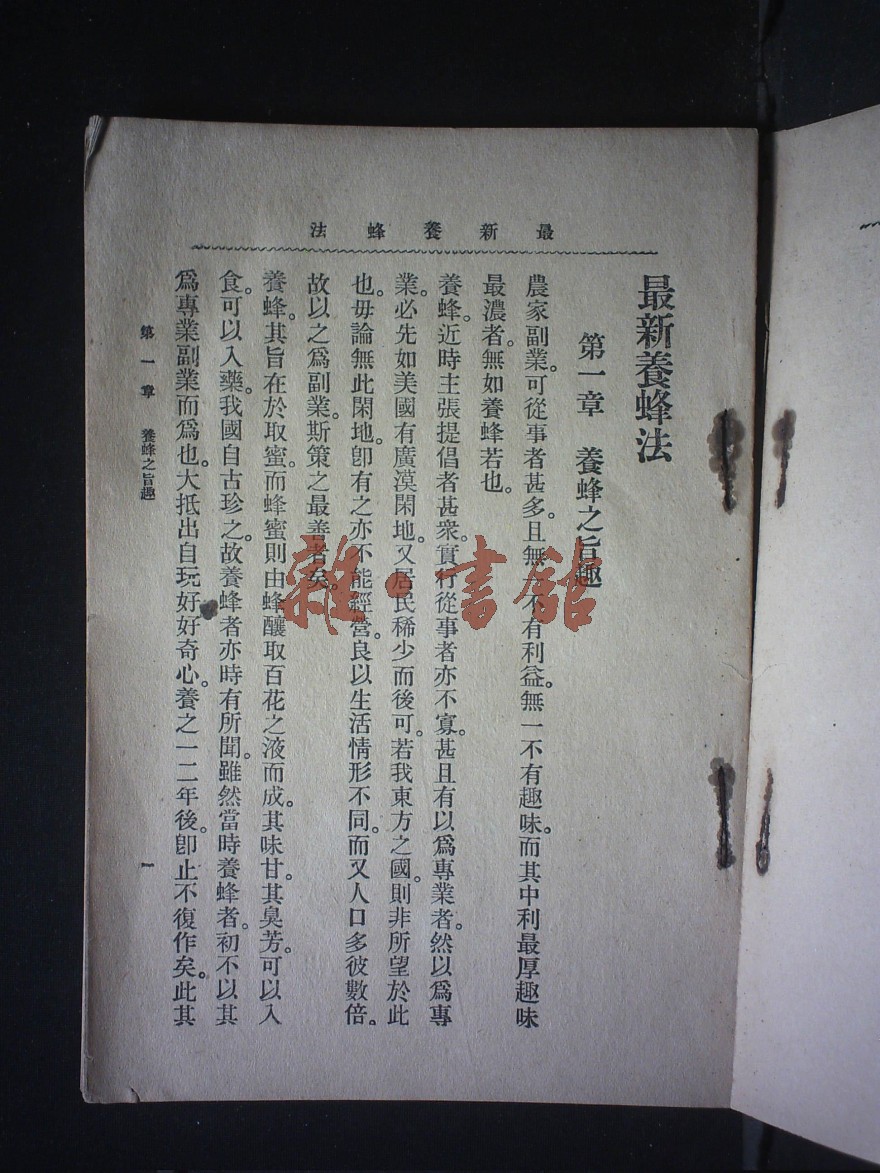 法蜂養新最
最新養蜂法
第一章　養蜂之旨趣
農家副業。可從事者甚多。且無一不有利益。無一不有趣味。而其中利最厚趣味
最濃者。無如養蜂若也。
養蜂。近時主張提倡者甚衆。實行從事者亦不寡。甚且有以爲專業者。然以爲專
業。必先如美國有廣漠閑地。又居民稀少而後可。若我東方之國。則非所望於此
也。毋論無此閑地。卽有之亦不能經營。良以生活情形不同。而又人口多彼數倍。
故以之爲副業。斯策之最善者矣。
養蜂。其旨在於取蜜。而蜂蜜則由蜂釀取百花之液而成。其味甘。其臭芳。可以入
食。可以入藥。我國自古珍之。故養蜂者亦時有所聞。雖然當時養蜂者。初不以其
爲專業副業而爲也。大抵出自玩好好奇心。養之一二年後。卽止不復作矣。此其
第一章　養蜂之旨趣
一
雜·書舘